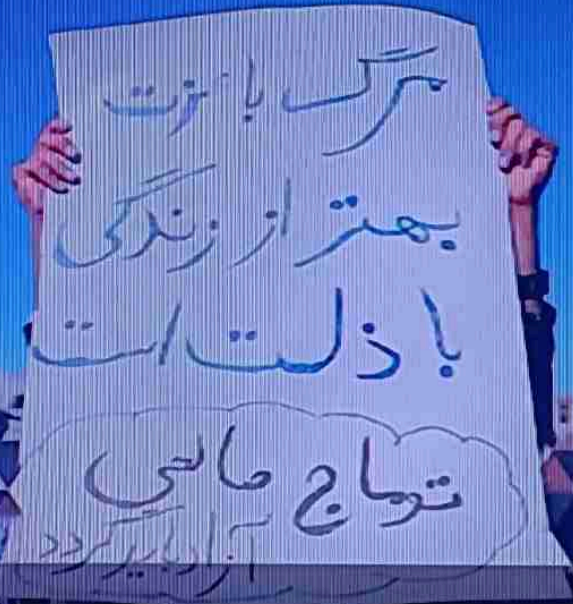 مرگ با عزت
بهتر از زندگی
با ذلت است
توماج صالحی
آزاد باید گردد